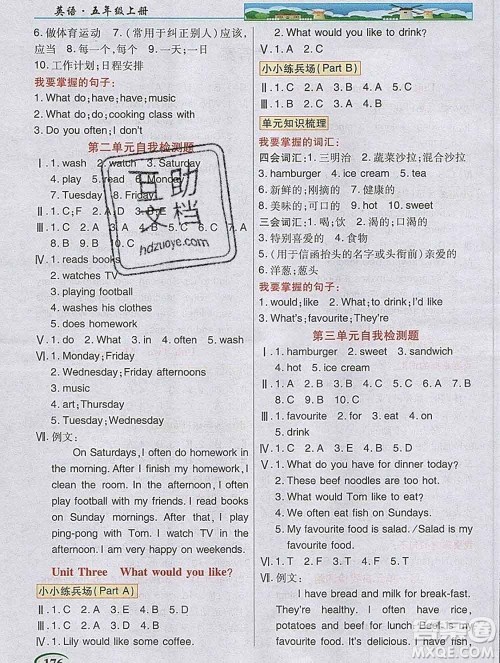 英语·五年级上册
6. 做体育运动 7. (常用于纠正别人)应该,
应当 8. 每一个 9. 一天;一日
10. 工作计划;日程安排
我要掌握的句子:
1. What do;have;have;music
2. What do;do;cooking class with
3. Do you often;I don't
第二单元自我检测题
Ⅰ. 1. wash 2. watch 3. Saturday
4. play 5. read 6. Monday
7. Tuesday 8. Friday
Ⅱ. 1. C;F 2. A;D
8. B 9. B 10. C
Ⅳ. 1. reads books
2. watches TV
3. playing football
4. washes his clothes
5. does homework
Ⅴ. 1. What 2. What 3. in 4. often 5. wash
Ⅵ. 1. Monday;Friday
2. Wednesday;Friday afternoons
3. music
4. art;Thursday
5. Tuesday;Wednesday
Ⅶ. 例文:
On Saturdays, I often do homework
in the morning. After I finish my homework, I
clean the room. In the afternoon, I often
play football with my friends. I read books
on Sunday mornings. In the afternoon, I play
ping-pong with Tom. I watch TV in the
evening. I am very happy on weekends.
Unit Three What would you like?
小小练兵场(Part A)
Ⅱ. 1. C 2. A 3. E 4. B 5. D
Ⅲ. 1. A 2. D 3. B 4. C
Ⅳ. 1. Lily would like some coffee.
176
2. What would you like to drink?
Ⅴ. 1. C 2. A 3. B 4. D
小小练兵场(Part B)
Ⅱ. 1. B 2. C 3. A 4. C 5. A
单元知识梳理
我要掌握的词汇:
四会词汇:1. 三明治 2. 蔬菜沙拉;混合沙拉
3. hamburger 4. ice cream 5. tea
6. 新鲜的;刚摘的 7. 健康的
8. 美味的;可口的 9. hot 10. sweet
三会词汇:1. 喝;饮 2. 渴的;口渴的
3. 特别喜爱的 4. 食物
5. (用于信函抬头的名字或头衔前)亲爱的
6. 洋葱;葱头
我要掌握的句子:
1. would;like 2. What;to drink;I'd like
3. What's;favourite;They're
第三单元自我检测题
Ⅰ. 1. hamburger 2. sweet 3. sandwich
4. hot 5. ice cream
Ⅱ. 1. A 2. B 3. B 4. C 5. A 6. C 7. A
8. C 9. A
Ⅲ. 1. favourite 2. for 3. to 4. don't 5. and
Ⅳ. 1. D 2. C 3. A 4. B
Ⅴ. 1. What do you have for dinner today?
2. These beef noodles are too hot.
3. What would Tom like to eat?
4. We often eat fish on Sundays.
5. My favourite food is salad. /Salad is my
favourite food.
Ⅵ. 1. F 2. T 3. F 4. T 5. T
Ⅶ. 例文:
I have bread and milk for breakfast.
They are healthy. I often have rice,
potatoes and beef for lunch. Beef is my
favourite food. It's delicious. I have fish,
互助文档
hdzuoye.com